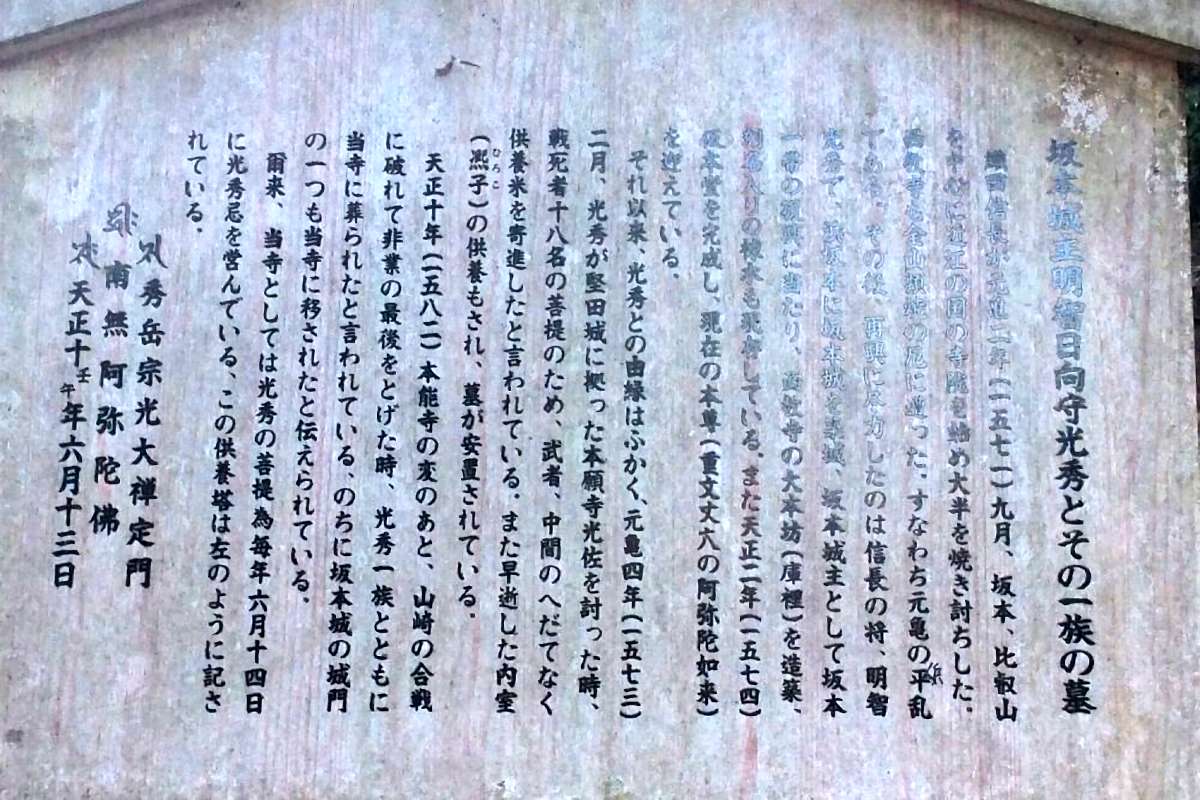 坂本城主明智日向守光秀とその一族の墓
織田信長が元亀二年(一五七一)九月、坂本、比叡山
を中心に近江の国の寺院を始め大半を焼き討ちした。
西教寺も全山類焼の厄に遭った。すなわち元亀の平乱
である。その後、再興に尽力したのは信長の将、明智
光秀で、坂本に坂本城を築城、坂本城主として坂本
一帯の復興に当たり、西教寺の大本坊(庫裡)を造築、
棟木も現存している。また天正二年(一五七四)
仮本堂を完成し、現在の本尊(重文丈六の阿弥陀如来)
を迎えている。
それ以来、光秀との由縁はふかく、元亀四年(一五七三)
二月、光秀が堅田城に拠った本願寺光佐を討った時、
戦死者十八名の菩提のため、武者、中間のへだてなく
供養米を寄進したと言われている。また早逝した内室
(凞子)の供養もされ、墓が安置されている。
ひろこ
天正十年(一五八二)本能寺の変のあと、山崎の合戦
に破れて非業の最後をとげた時、光秀一族とともに
当寺に葬られたと言われている、のちに坂本城の城門
の一つも当寺に移されたと伝えられている。
爾来、当寺としては光秀の菩提為毎年六月十四日
に光秀忌を営んでいる、この供養塔は左のように記さ
れている。
秀岳宗光大禅定門
南無阿弥陀佛
天正十壬午年六月十三日